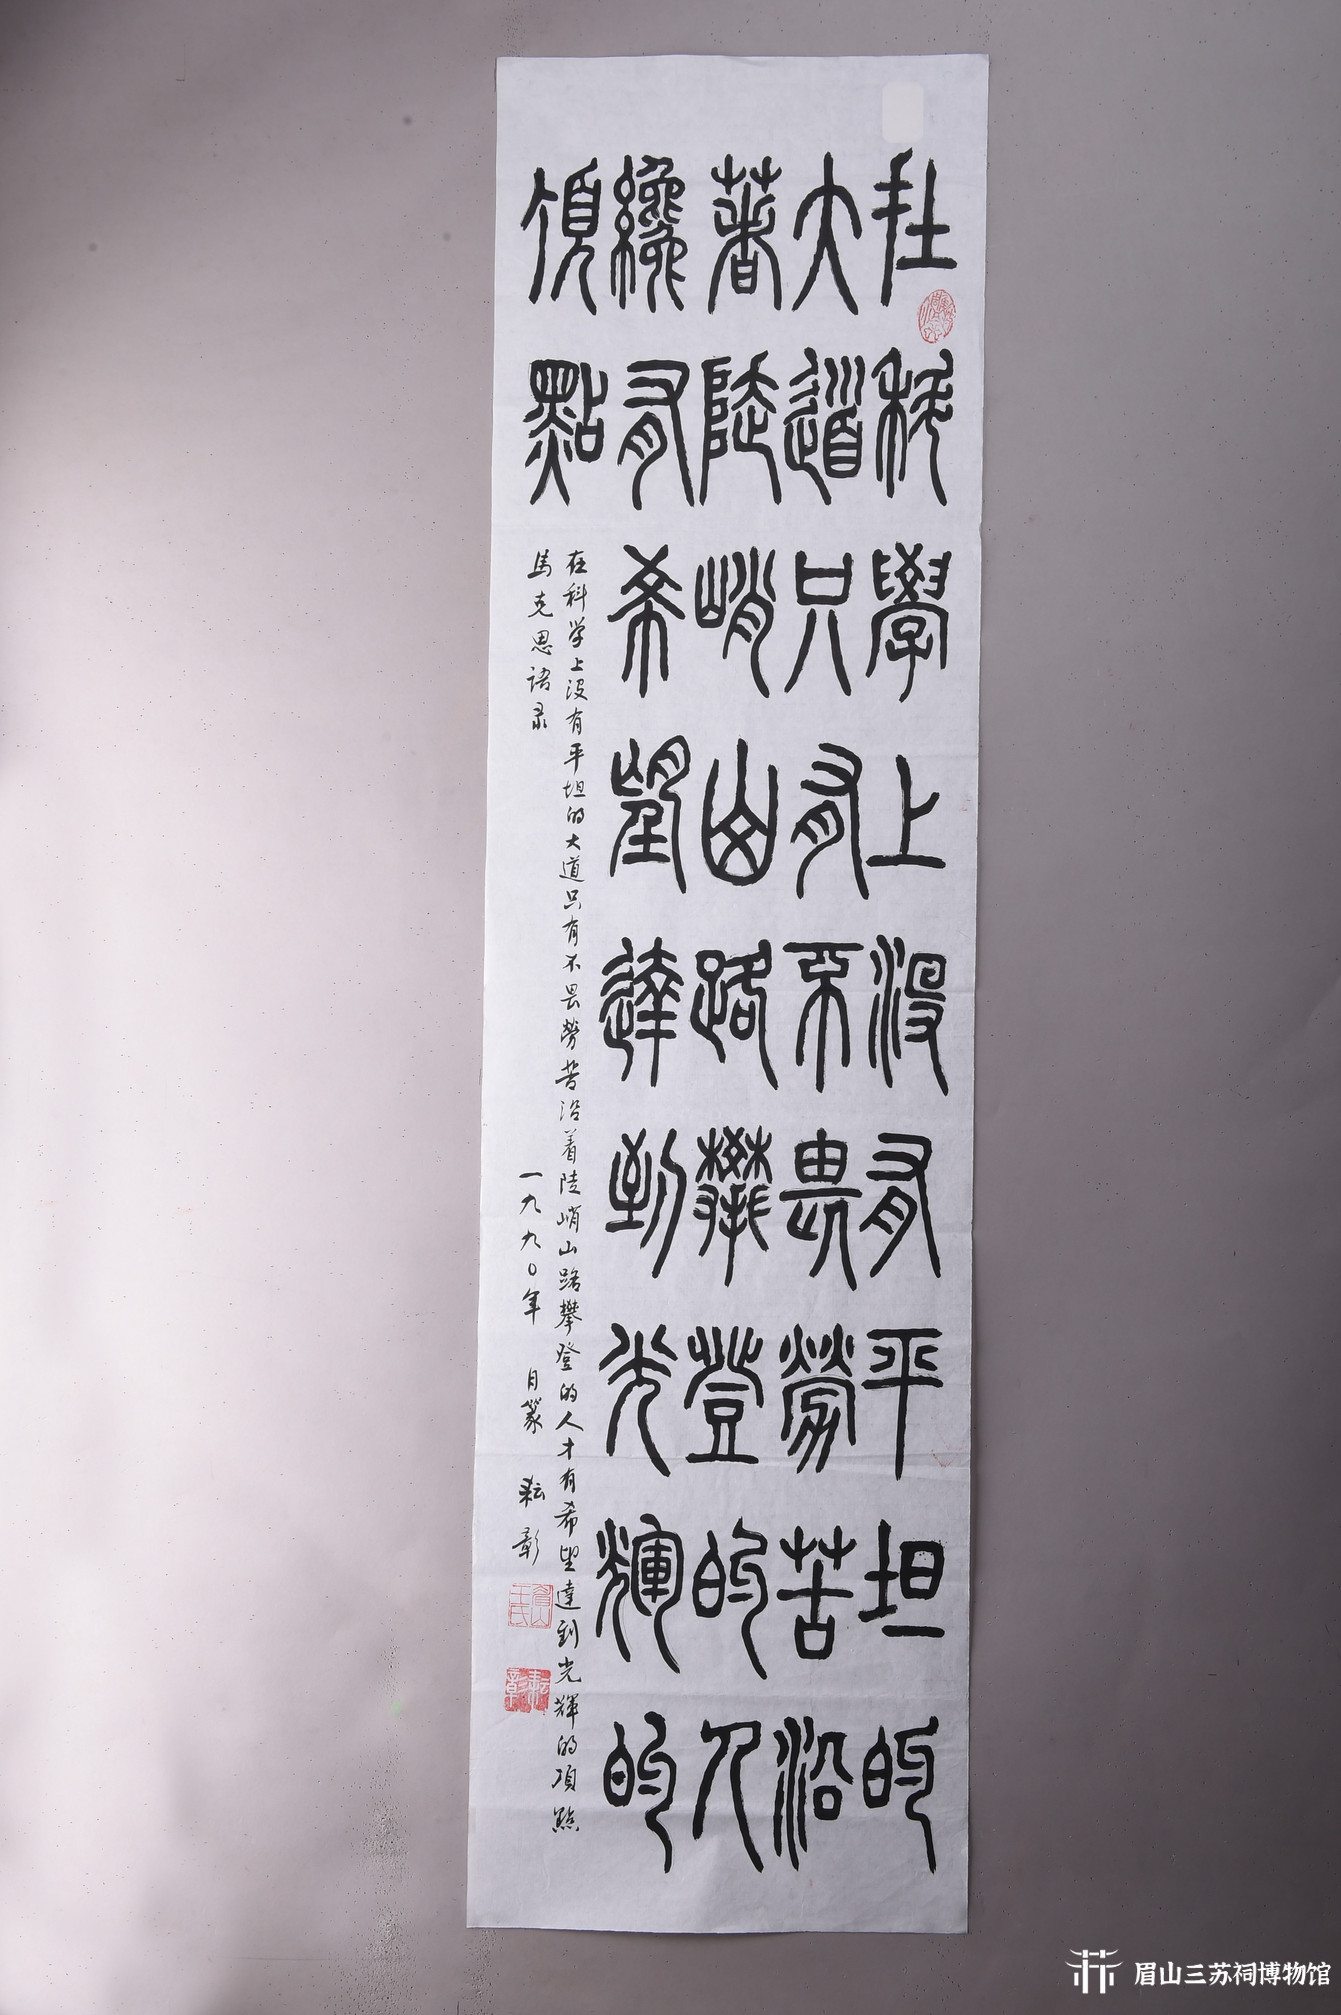 在科學上沒有平坦的
大道只有不畏勞苦沿
著陡峭山路攀登的人
纔有希望達到光輝的
頂點
在科学上没有平坦的大道只有不畏勞苦沿着陡峭山路攀登的人才有希望達到光輝的顶點
馬克思语录
一九九〇年 月篆 耘彰
耘彰
眉山三苏祠博物馆